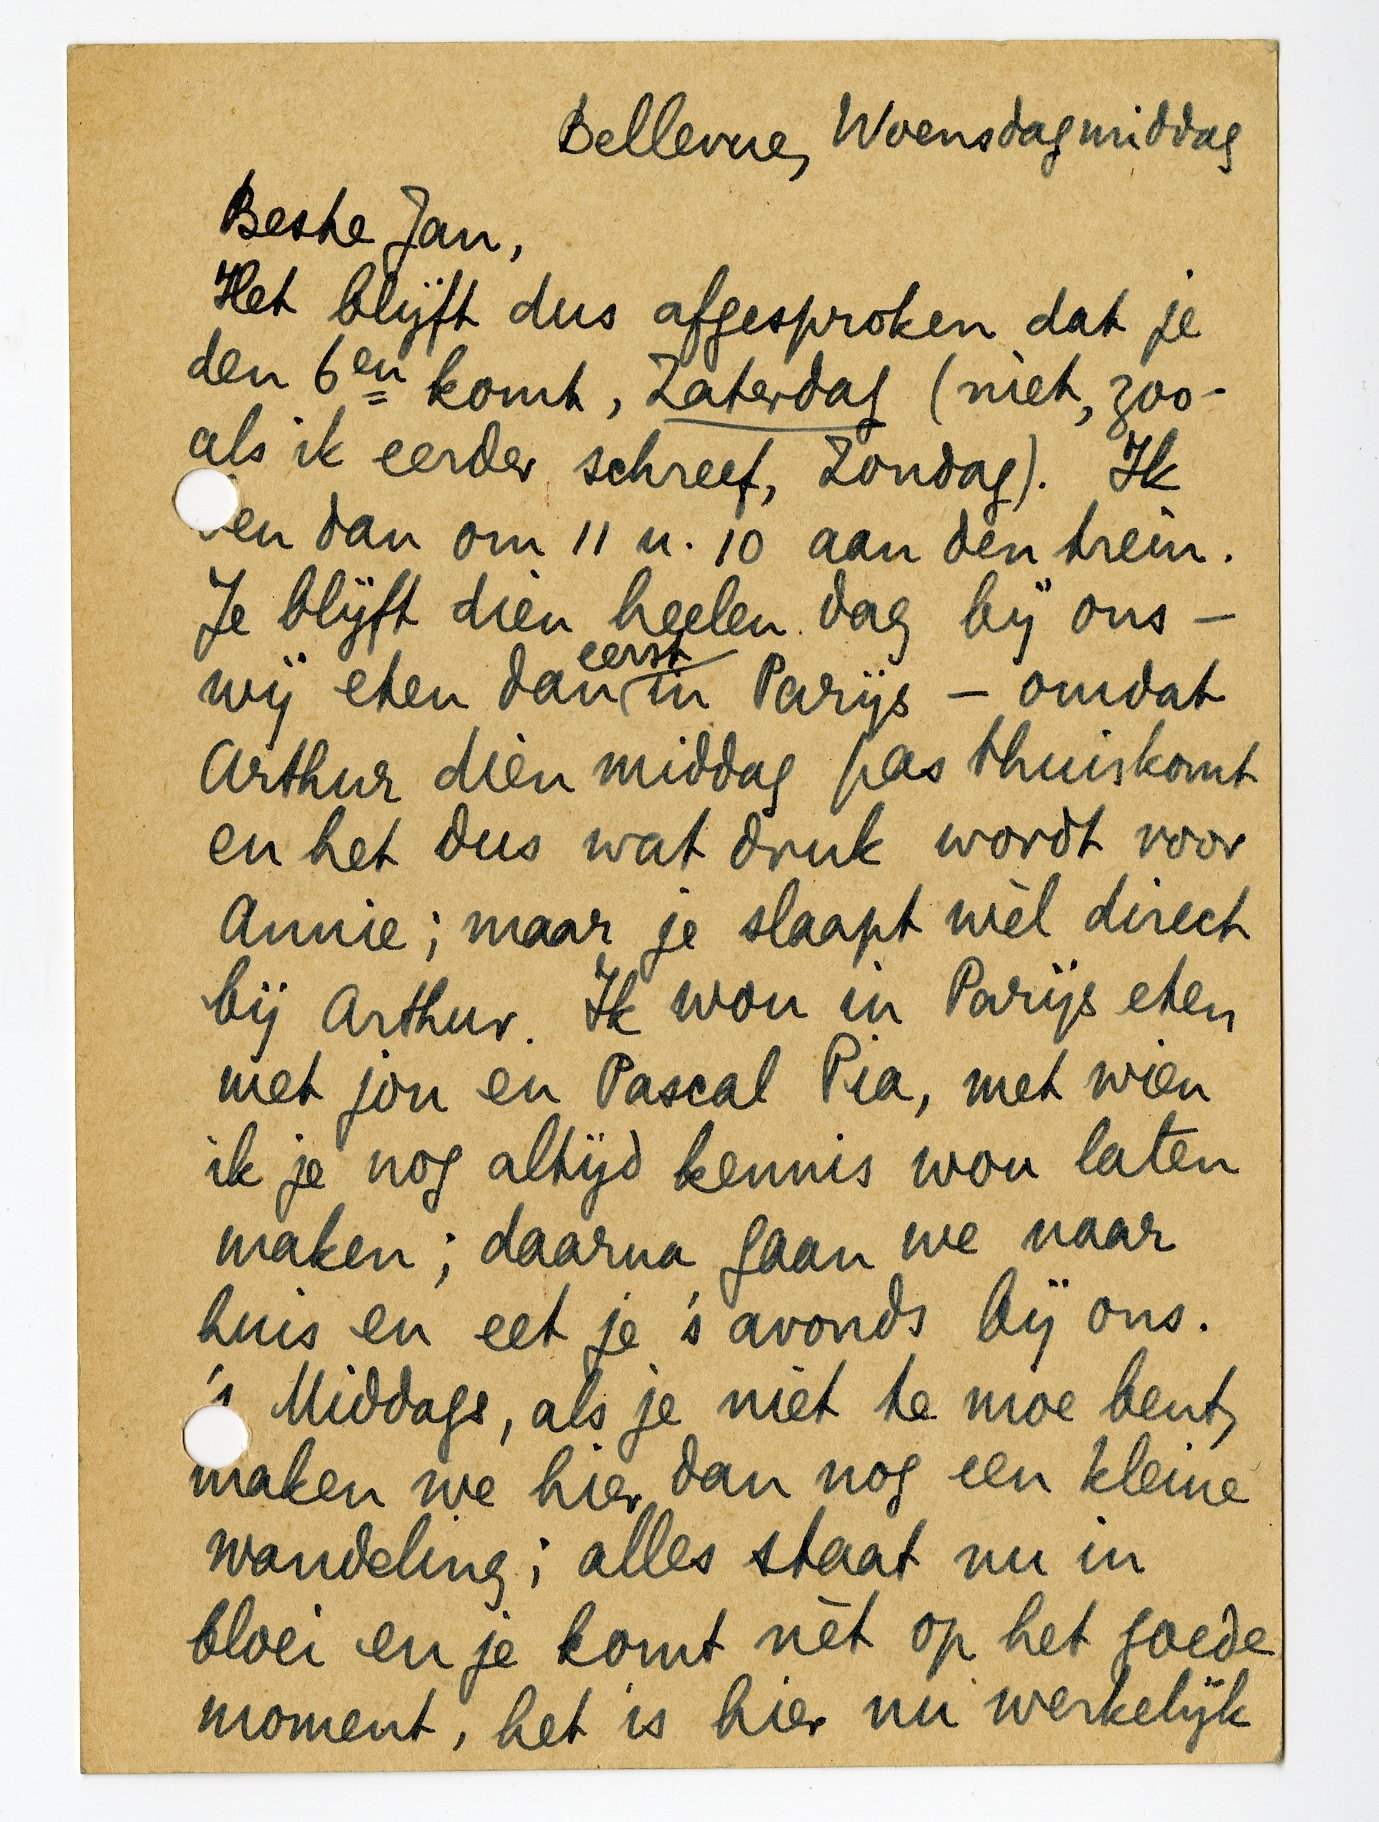 Bellevue, Woensdagmiddag
Beste Jan,
Het blijft dus afgesproken dat je
den 6en komt, Zaterdag (niet, zoo-
als ik eerder schreef, Zondag). Ik
ben dan om 11 u. 10 aan den trein.
Je blijft dien heelen dag bij ons –
wij eten dan eerst in Parijs – omdat
Arthur dien middag pas thuiskomt
en het dus wat druk wordt voor
Annie; maar je slaapt wèl direct
bij Arthur. Ik wou in Parijs eten
met jou en Pascal Pia, met wien
ik je nog altijd kennis wou laten
maken; daarna gaan we naar
huis en eet je 's avonds bij ons.
's Middags, als je niet te moe bent,
maken we hier dan nog een kleine
wandeling; alles staat nu in
bloei en je komt nèt op het goede
moment, het is hier nu werkelijk